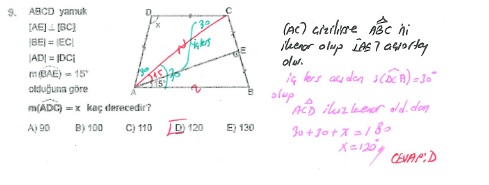 9. ABCD yamuk
[AE] ⊥ [BC]
|BE| = |EC|
|AD| = |DC|
m(BAE) = 15°
olduğuna göre
m(ADC) = x kaç derecedir?
A) 90 B) 100 C) 110 D) 120 E) 130
D C
x 30
iç ters
E
30 15 30 15°
A B
[AC] çizilirse ABC ni
ikizkenar olup [AE] açıortay
olur.
iç ters açıdan s(DCA) = 30°
olup
ACD ikizkenar old. dan
30 + 30 + x = 180
x = 120°
CEVAP: D